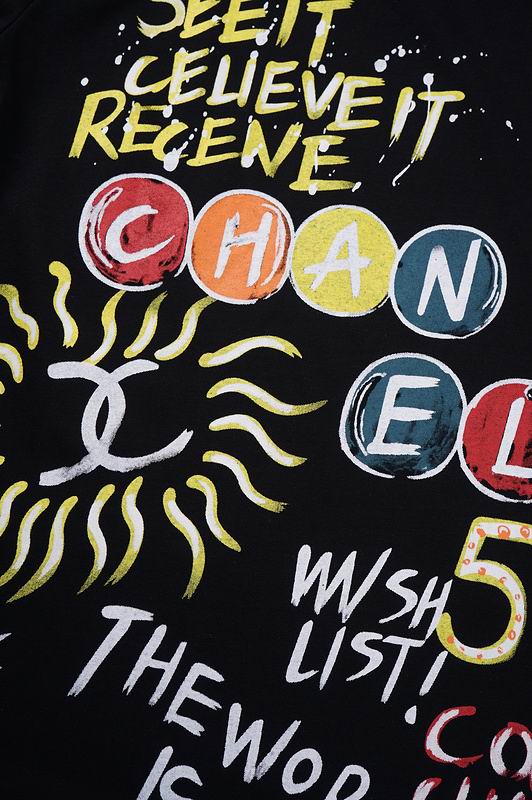 SEE IT
CELIEVE IT
RECENE
CHAN
EL
5
WISH
LIST!
THE WOR
IS
CO